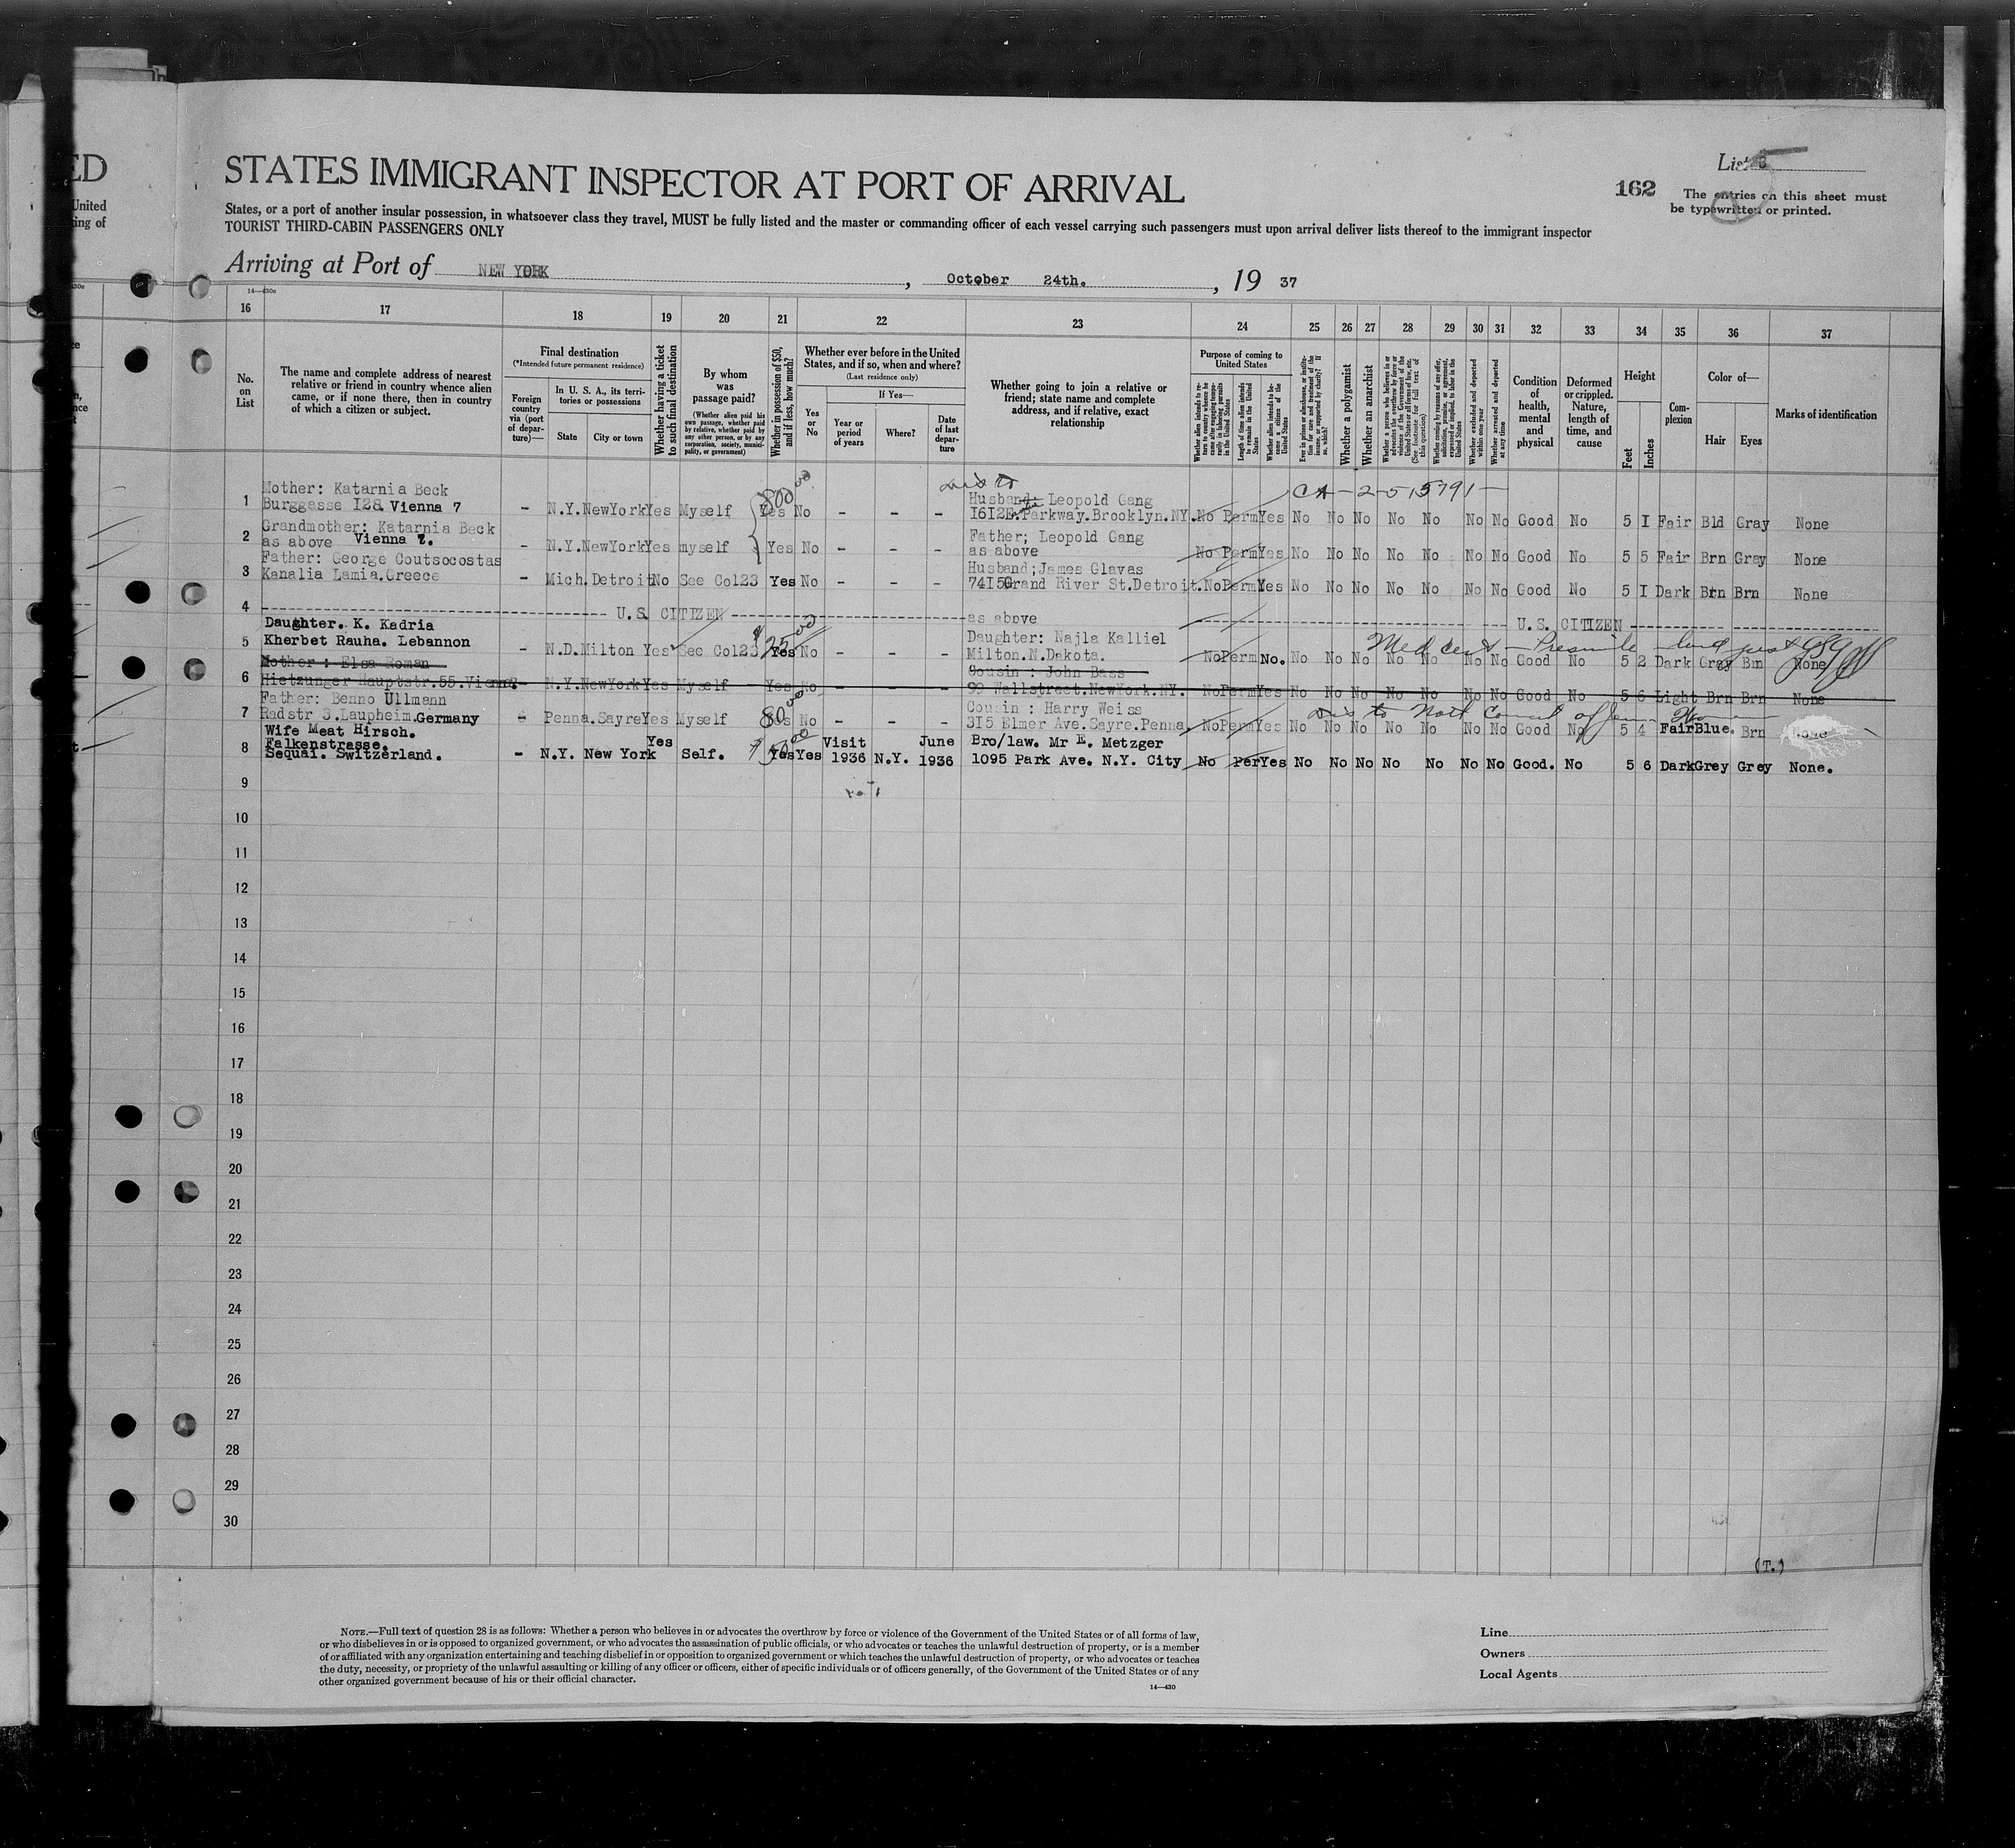 ED
United
ing of
STATES IMMIGRANT INSPECTOR AT PORT OF ARRIVAL
States, or a port of another insular possession, in whatsoever class they travel, MUST be fully listed and the master or commanding officer of each vessel carrying such passengers must upon arrival deliver lists thereof to the immigrant inspector
TOURIST THIRD-CABIN PASSENGERS ONLY
List
162
The entries on this sheet must
be typewritten or printed.
Arriving at Port of NEW YORK, October 24th., 19 37
14—430e
16 17 18 19 20 21 22 23 24 25 26 27 28 29 30 31 32 33 34 35 36 37
No. on List
The name and complete address of nearest relative or friend in country whence alien came, or if none there, then in country of which a citizen or subject.
Final destination
(*Intended future permanent residence)
Foreign country via (port of departure)—
In U. S. A., its territories or possessions
State
City or town
Whether having a ticket to such final destination
By whom was passage paid?
(Whether alien paid his own passage, whether paid by relative, whether paid by any other person, or by any corporation, society, municipality, or government)
Whether in possession of $50, and if less, how much?
Whether ever before in the United States, and if so, when and where?
(Last residence only)
Yes or No
If Yes—
Year or period of years
Where?
Date of last departure
Whether going to join a relative or friend; state name and complete address, and if relative, exact relationship
Purpose of coming to United States
Whether alien intends to return to country whence he came after engaging temporarily in laboring pursuits in the United States
Length of time alien intends to remain in the United States
Whether alien intends to become a citizen of the United States
Ever in prison or almshouse, or institution for care and treatment of the insane, or supported by charity? If so, which?
Whether a polygamist
Whether an anarchist
Whether a person who believes in or advocates the overthrow by force or violence of the Government of the United States or all forms of law, etc. (See footnote for full text of this question)
Whether coming by reasons of any offer, solicitation, promise, or agreement, expressed or implied, to labor in the United States
Whether excluded and deported within one year
Whether arrested and deported at any time
Condition of health, mental and physical
Deformed or crippled. Nature, length of time, and cause
Height
Feet
Inches
Complexion
Color of—
Hair
Eyes
Marks of identification
CA-2-515791-
Mother: Katarnia Beck Husband: Leopold Gang
1 Burggasse I28 Vienna 7 - N.Y. NewYork Yes Myself 800 00 Yes No - - - I6I2E.Parkway.Brooklyn.NY. No Perm Yes No No No No No No No Good No 5 I Fair Bld Gray None
Grandmother: Katarnia Beck Father; Leopold Gang
2 as above Vienna 7. - N.Y. NewYork Yes myself Yes No - - - as above No Perm Yes No No No No No No No Good No 5 5 Fair Brn Grey None
Father: George Coutsocostas Husband;James Glavas
3 Kanalia Lamia.Greece - Mich. Detroit No See Col23 Yes No - - - 74I5 Grand River St.Detroit. No Perm Yes No No No No No No No Good No 5 I Dark Brn Brn None
4 U.S. CITIZEN as above U.S. CITIZEN
Daughter. K. Kadria Daughter: Najla Kalliel
5 Kherbet Rauha. Lebannon - N.D. Milton Yes See Col23 $25 00 Yes No - - - Milton.N.Dakota. No Perm No. No No No No No No No Good No 5 2 Dark Gray Brn None
Med cert
Mother : Elsa Roman Cousin : John Bass
6 Hietzunger Hauptstr.55.Vienna - N.Y. NewYork Yes Myself Yes No - - - 99 Wallstreet.NewYork.NY. No Perm Yes No No No No No No No Good No 5 6 Light Brn Brn None
Father: Benno Ullmann Cousin : Harry Weiss
7 Radstr 3.Laupheim.Germany Penna. Sayre Yes Myself 80 00 Yes No - - - 3I5 Elmer Ave.Sayre.Penna. No Perm Yes No No No No No No No Good No 5 4 Fair Blue. Brn None
Wife Meat Hirsch.
8 Falkenstrasse. Yes Visit June Bro/law. Mr E. Metzger
Sequai. Switzerland. - N.Y. New York Self. Yes Yes 1936 N.Y. 1936 1095 Park Ave. N.Y. City No Per Yes No No No No No No No Good. No 5 6 Dark Grey Grey None.
9
10
11
12
13
14
15
16
17
18
19
20
21
22
23
24
25
26
27
28
29
30
(T.)
NOTE.—Full text of question 28 is as follows: Whether a person who believes in or advocates the overthrow by force or violence of the Government of the United States or of all forms of law,
or who disbelieves in or is opposed to organized government, or who advocates the assassination of public officials, or who advocates or teaches the unlawful destruction of property, or is a member
of or affiliated with any organization entertaining and teaching disbelief in or opposition to organized government or which teaches the unlawful destruction of property, or who advocates or teaches
the duty, necessity, or propriety of the unlawful assaulting or killing of any officer or officers, either of specific individuals or of officers generally, of the Government of the United States or of any
other organized government because of his or their official character.
14—430
Line
Owners
Local Agents